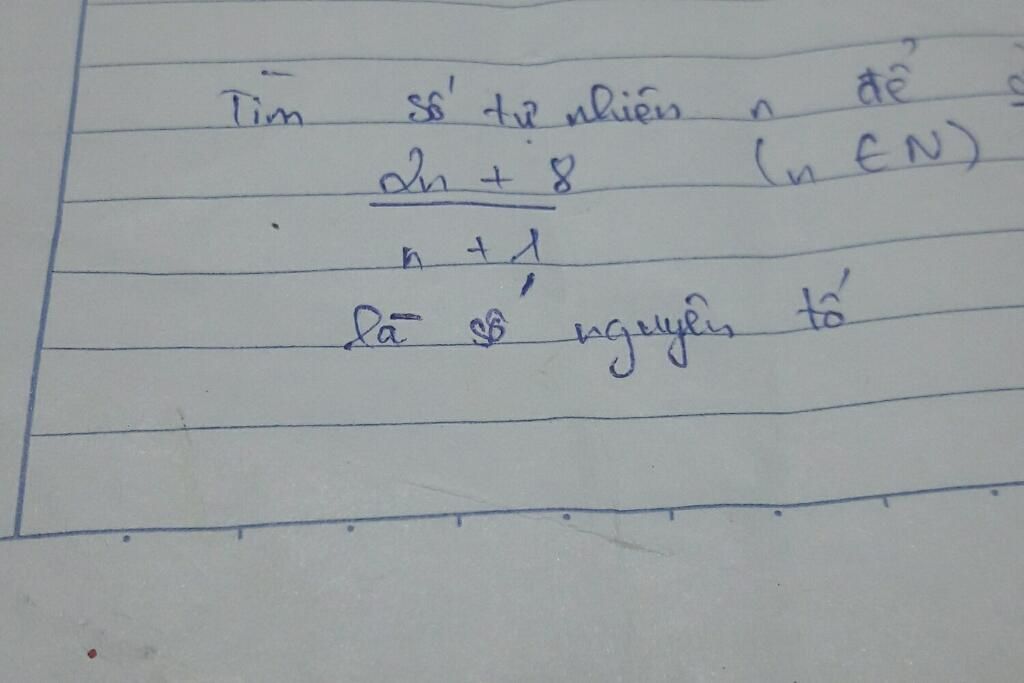 Tìm số tự nhiên n để
2n + 8 (n ∈ N)
n + 1
là số nguyên tố